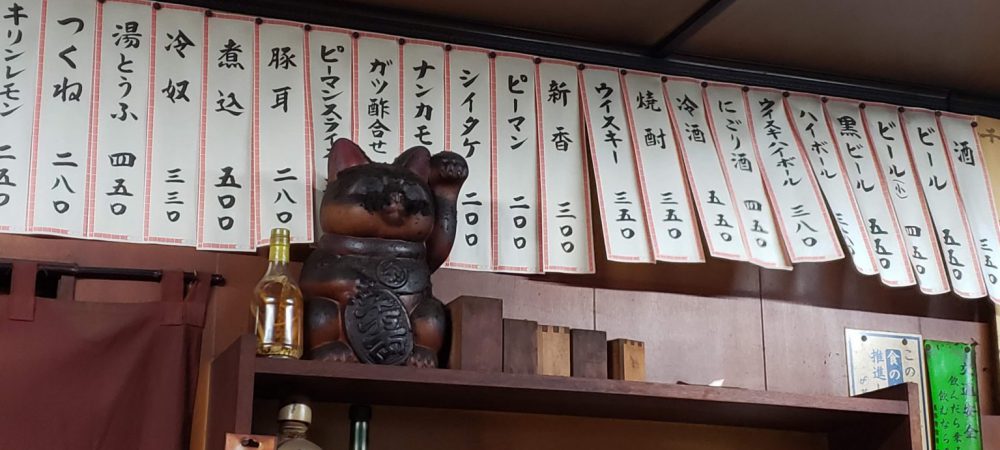 酒 三五〇
ビール 五五〇
ビール(小) 四五〇
黒ビール 五五〇
ハイボール 三八
ウイスキハイボール 三八〇
にごり酒 四五〇
冷酒 五五〇
焼酎 三五〇
ウイスキー 三五〇
新香 三〇〇
ピーマン 二〇〇
シイタケ 二〇〇
ナンカモ
ガツ酢合せ
ピーマンスライ
豚耳 二八〇
煮込 五〇〇
冷奴 三三〇
湯とうふ 四五〇
つくね 二八〇
キリンレモン 二五〇
この
食の
推進
交通安全
飲んだら乗る
飲むなら